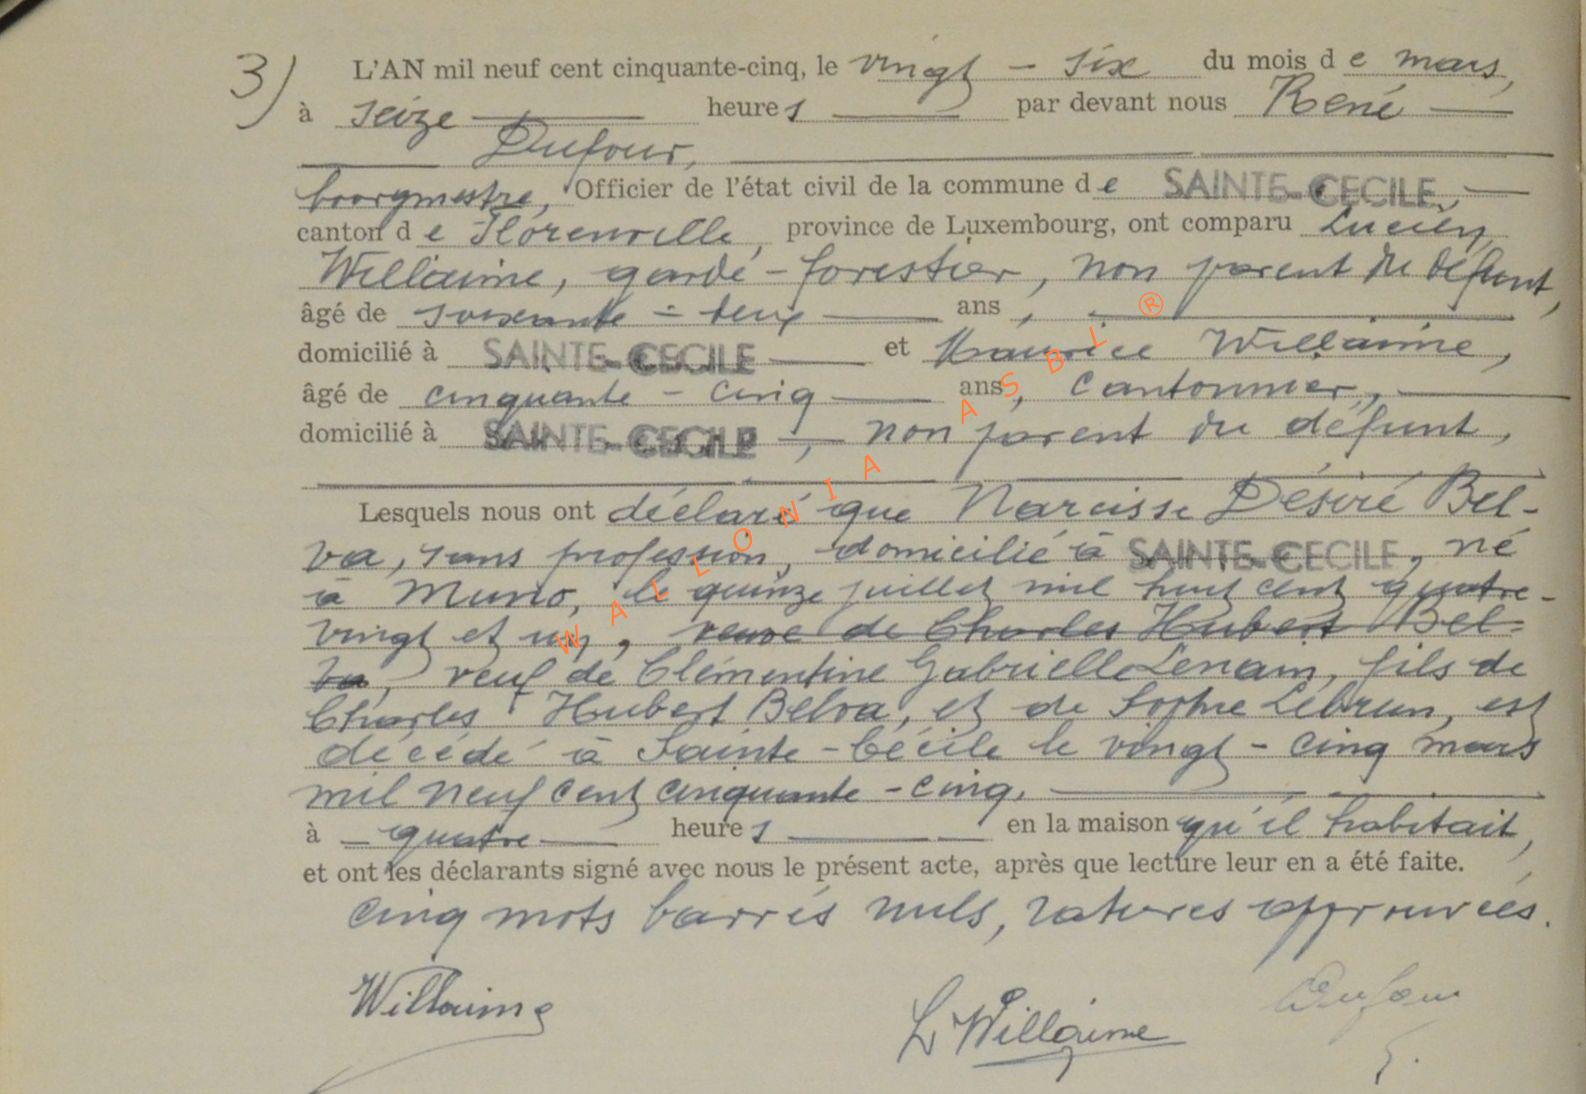 3) L'AN mil neuf cent cinquante-cinq, le vingt - six du mois de mars,
à seize heures par devant nous René
Dufour,
bourgmestre, Officier de l'état civil de la commune de SAINTE-CECILE,
canton de Florenville, province de Luxembourg, ont comparu Lucien
Willaime, garde-forestier, non parent du défunt,
âgé de soixante-deux ans,
domicilié à SAINTE-CECILE et Maurice Willaime,
âgé de cinquante-cinq ans, cantonnier,
domicilié à SAINTE-CECILE, non parent du défunt,
Lesquels nous ont déclaré que Narcisse Désiré Bel-
va, sans profession, domicilié à SAINTE-CECILE, né
à Muno, le quinze juillet mil huit cent quatre-
vingt et un, veuve de Charles Hubert Bel-
va, veuf de Clémentine Gabrielle Lenain, fils de
Charles Hubert Belva, et de Sophie Lebrun, est
décédé à Sainte-Cécile le vingt-cinq mars
mil neuf cent cinquante-cinq.
à quatre heures en la maison qu'il habitait,
et ont les déclarants signé avec nous le présent acte, après que lecture leur en a été faite.
cinq mots barrés nuls, ratures approuvées.
Willaime L Willaime Dufour
WALLONIA ASBL ®